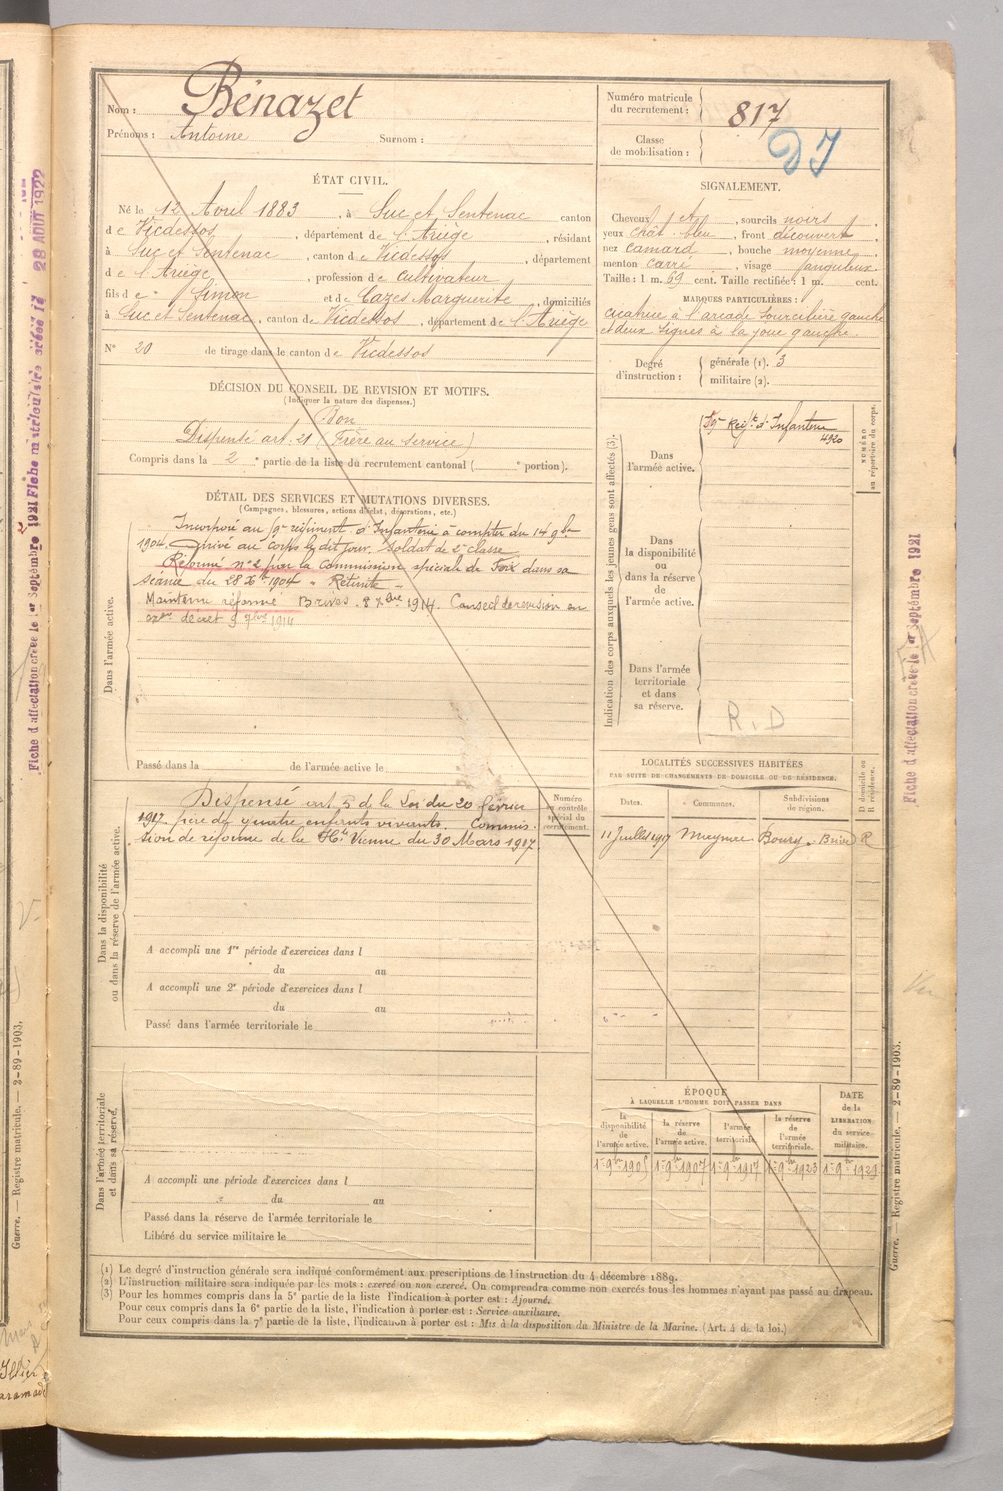 Nom : Bénazet
Prénoms : Antoine Surnom :
Numéro matricule du recrutement : 817
Classe de mobilisation :
ÉTAT CIVIL.
Né le 12 Avril 1883, à Suc et Sentenac canton
de Vicdessos, département de l'Ariège, résidant
à Suc et Sentenac, canton de Vicdessos, département
de l'Ariège, profession de Cultivateur
fils de Simon et de Cazes Marguerite, domiciliés
à Suc et Sentenac, canton de Vicdessos, département de l'Ariège
N° 20 de tirage dans le canton de Vicdessos
SIGNALEMENT.
Cheveux et, sourcils noirs
yeux chât. bleu, front découvert
nez camard, bouche moyenne
menton carré, visage
Taille : 1 m. 69 cent. Taille rectifiée : 1 m. cent.
MARQUES PARTICULIÈRES :
Cicatrice à l'arcade sourcilière gauche
et deux signes à la joue gauche.
Degré d'instruction : générale (1). 3
militaire (2).
DÉCISION DU CONSEIL DE REVISION ET MOTIFS.
(Indiquer la nature des dispenses.)
Bon
Dispensé art. 21 (Frère au service)
Compris dans la 2e partie de la liste du recrutement cantonal ( e portion).
DÉTAIL DES SERVICES ET MUTATIONS DIVERSES.
(Campagnes, blessures, actions d'éclat, décorations, etc.)
Dans l'armée active.
Incorporé au 9e régiment d'Infanterie à compter du 14 9bre
1904. Arrivé au corps le dit jour. Soldat de 2e classe
Réformé n° 2 par la Commission spéciale de Foix dans sa
séance du 28 Xbre 1904 « Rétinite »
Maintenu réformé Brives. 8 Xbre 1914. Conseil de revision en
décret 9 7bre 1914
Passé dans la de l'armée active le
Indication des corps auxquels les jeunes gens sont affectés (3).
Dans l'armée active.
9e Régt d'Infanterie
4920
NUMÉRO au répertoire du corps.
Dans la disponibilité ou dans la réserve de l'armée active.
Dans l'armée territoriale et dans sa réserve.
R.D
Dans la disponibilité ou dans la réserve de l'armée active.
Dispensé art. 5 de la Loi du 20 février
1917 père de quatre enfants vivants. Commis-
sion de réforme de la Hte Vienne du 30 Mars 1917.
Numéro au contrôle spécial du recrutement.
A accompli une 1re période d'exercices dans l
du au
A accompli une 2e période d'exercices dans l
du au
Passé dans l'armée territoriale le
LOCALITÉS SUCCESSIVES HABITÉES
PAR SUITE DE CHANGEMENTS DE DOMICILE OU DE RÉSIDENCE.
Dates. Communes. Subdivisions de région. D domicile ou R résidence.
11 Juillet 1917 Meymac Brive R
Dans l'armée territoriale et dans sa réserve.
A accompli une période d'exercices dans l
du au
Passé dans la réserve de l'armée territoriale le
Libéré du service militaire le
ÉPOQUE
À LAQUELLE L'HOMME DOIT PASSER DANS
la disponibilité de l'armée active. la réserve de l'armée active. l'armée territoriale. la réserve de l'armée territoriale.
DATE de la LIBÉRATION du service militaire.
1er 9bre 1905 1er 9bre 1907 1er 9bre 1917 1er 9bre 1923 1er 9bre 1929
(1) Le degré d'instruction générale sera indiqué conformément aux prescriptions de l'instruction du 4 décembre 1889.
(2) L'instruction militaire sera indiquée par les mots : exercé ou non exercé. On comprendra comme non exercés tous les hommes n'ayant pas passé au drapeau.
(3) Pour les hommes compris dans la 5e partie de la liste l'indication à porter est : Ajourné.
Pour ceux compris dans la 6e partie de la liste, l'indication à porter est : Service auxiliaire.
Pour ceux compris dans la 7e partie de la liste, l'indication à porter est : Mis à la disposition du Ministre de la Marine. (Art. 4 de la loi.)
Guerre. — Registre matricule. — 2-89-1903.
Fiche d'affectation créée le 1er Septembre 1921
Fiche matriculaire créée le 28 AOUT 1922
Fiche d'affectation créée le 1er Septembre 1921
Guerre. — Registre matricule. — 2-89-1903.